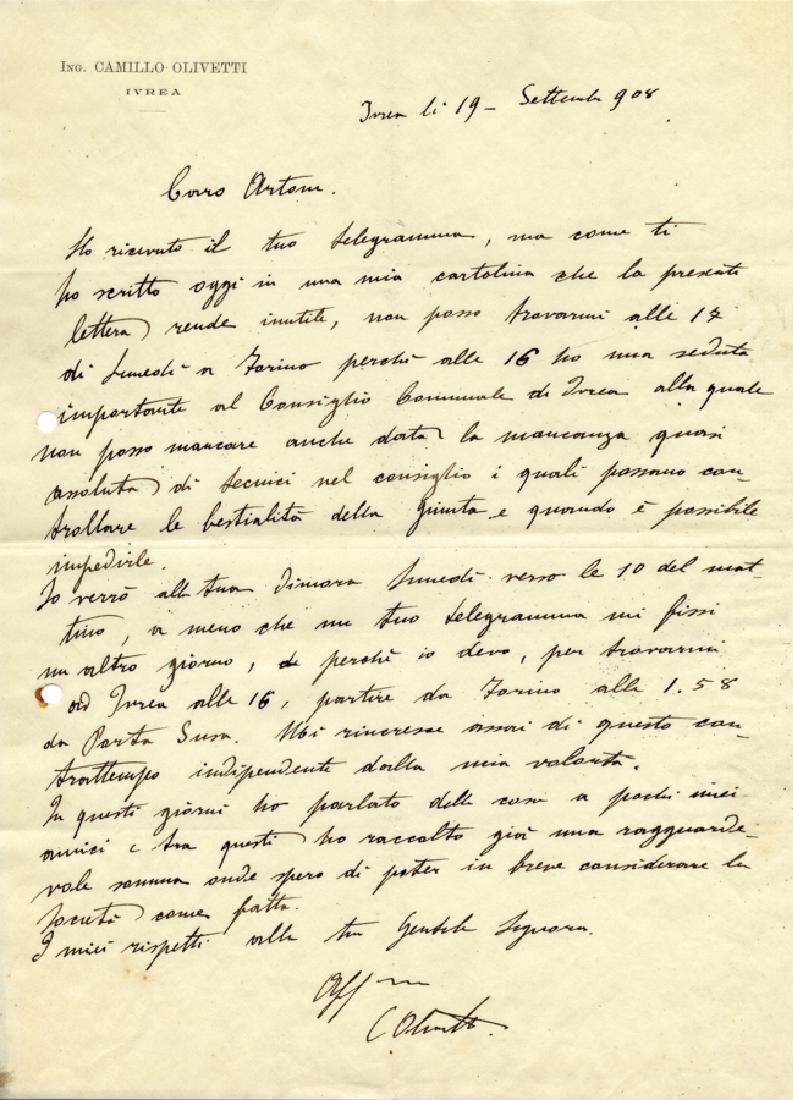 ING. CAMILLO OLIVETTI
IVREA
Ivrea li 19 - Settembre 908
Caro Artom.
Ho ricevuto il tuo telegramma, ma come ti
ho scritto oggi in una mia cartolina che la presente
lettera rende inutile, non posso trovarmi alle 17
di Lunedì a Torino perchè alle 16 ho una seduta
importante al Consiglio Comunale di Ivrea alla quale
non posso mancare anche data la mancanza quasi
assoluta di tecnici nel consiglio i quali possano con-
trollare le bestialità della Giunta e quando è possibile
impedirle.
Io verrò alla tua dimora Lunedì verso le 10 del mat-
tino, a meno che un tuo telegramma mi fissi
un altro giorno, perchè io devo, per trovarmi
ad Ivrea alle 16, partire da Torino alle 1.58
da Porta Susa. Mi rincresce assai di questo con-
trattempo indipendente dalla mia volontà.
In questi giorni ho parlato della cosa a pochi miei
amici e tra questi ho raccolto già una ragguarde-
vole somma onde spero di poter in breve considerare la
Società come fatta.
I miei rispetti alla tua Gentile Signora.
Aff mo
C Olivetti